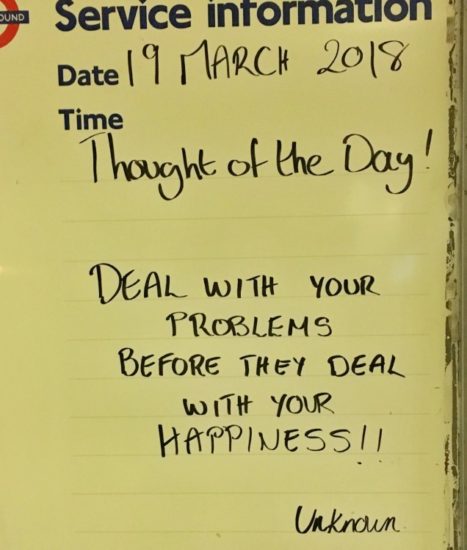 OUND
Service information
Date 19 MARCH 2018
Time
Thought of the Day!
DEAL WITH YOUR
PROBLEMS
BEFORE THEY DEAL
WITH YOUR
HAPPINESS!!
Unknown